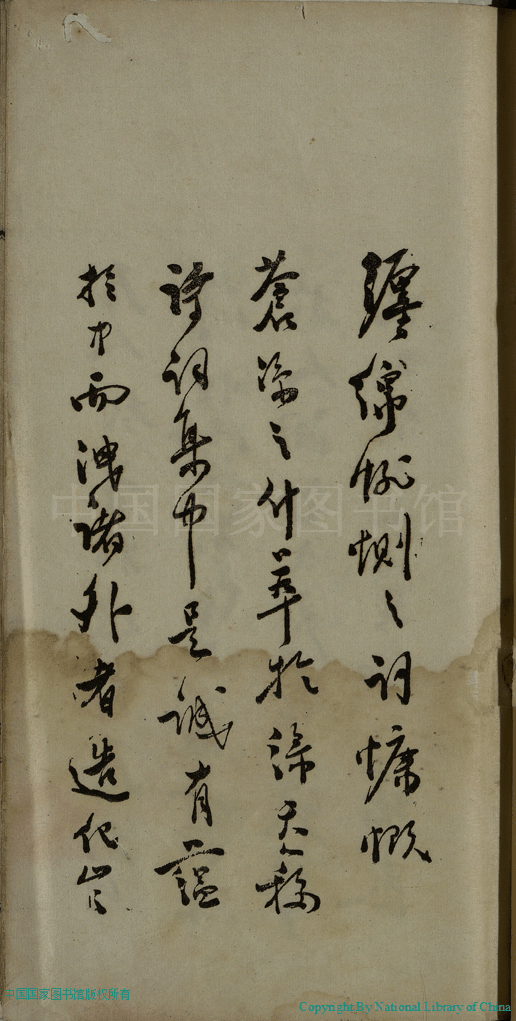 纏綿悱惻之詞慷慨
蒼涼之什萃於
詩詞集中是誠有蘊
於中而洩諸外者造化豈
中国国家图书馆
中国国家图书馆版权所有
Copyright By National Library of China